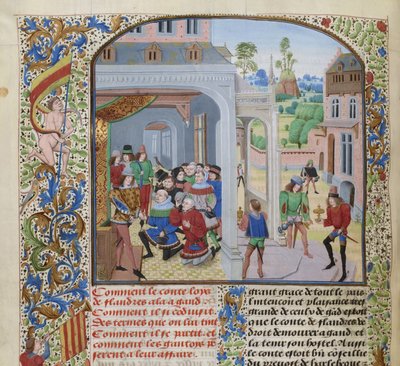 Comment le conte loys
de flandres ala a gand.
Comment il se conduist.
Des termes que on lui tint
Comment il se partit. et
comment les gantois per
seuererent a leur affaire.
grant grace de tout le pais
lintencion et plaisance tres
grande de ceulx de gand estoit
que le conte de flandres de
mourast a gand. et
la tenist son hostel. Aussi
le conte estoit bien conseillie
du preuost de harlebeque